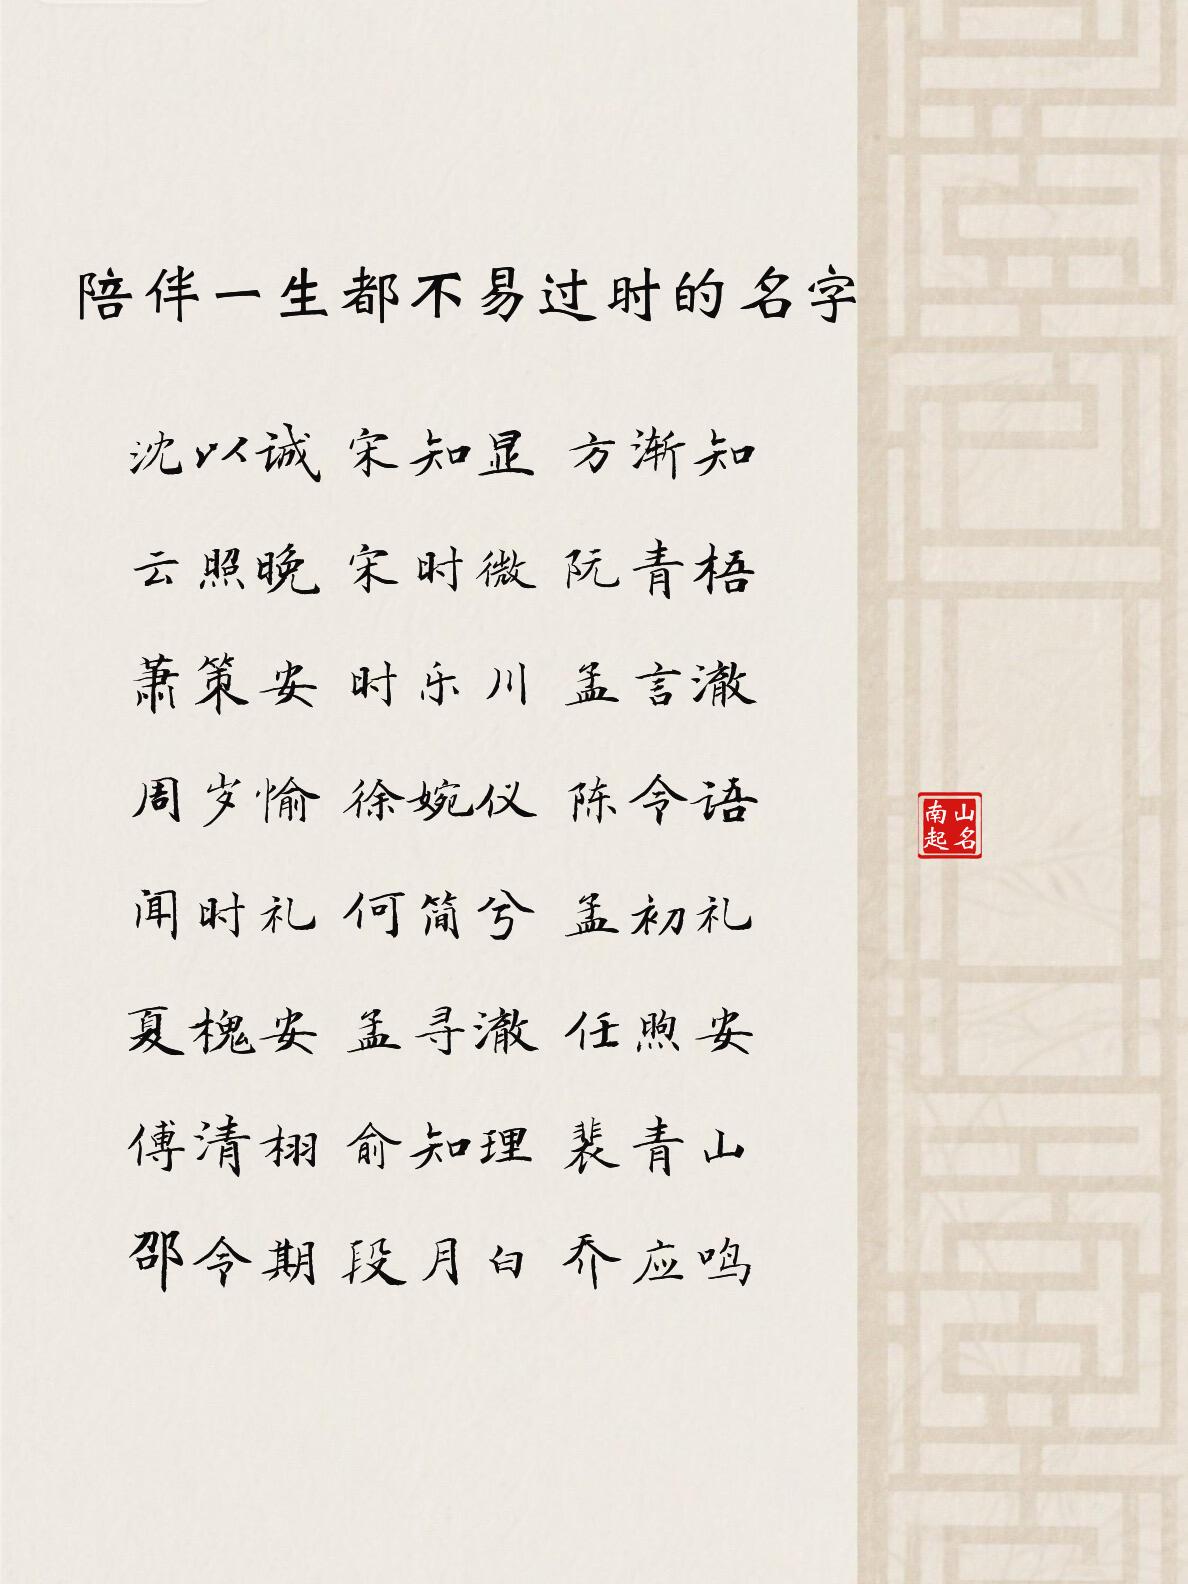 陪伴一生都不易过时的名字
沈以诚 宋知显 方渐知
云照晚 宋时微 阮青梧
萧策安 时乐川 孟言澈
周岁愉 徐婉仪 陈令语
闻时礼 何简兮 孟初礼
夏槐安 孟寻澈 任煦安
傅清栩 俞知理 裴青山
邵令期 段月白 乔应鸣
南山
起名